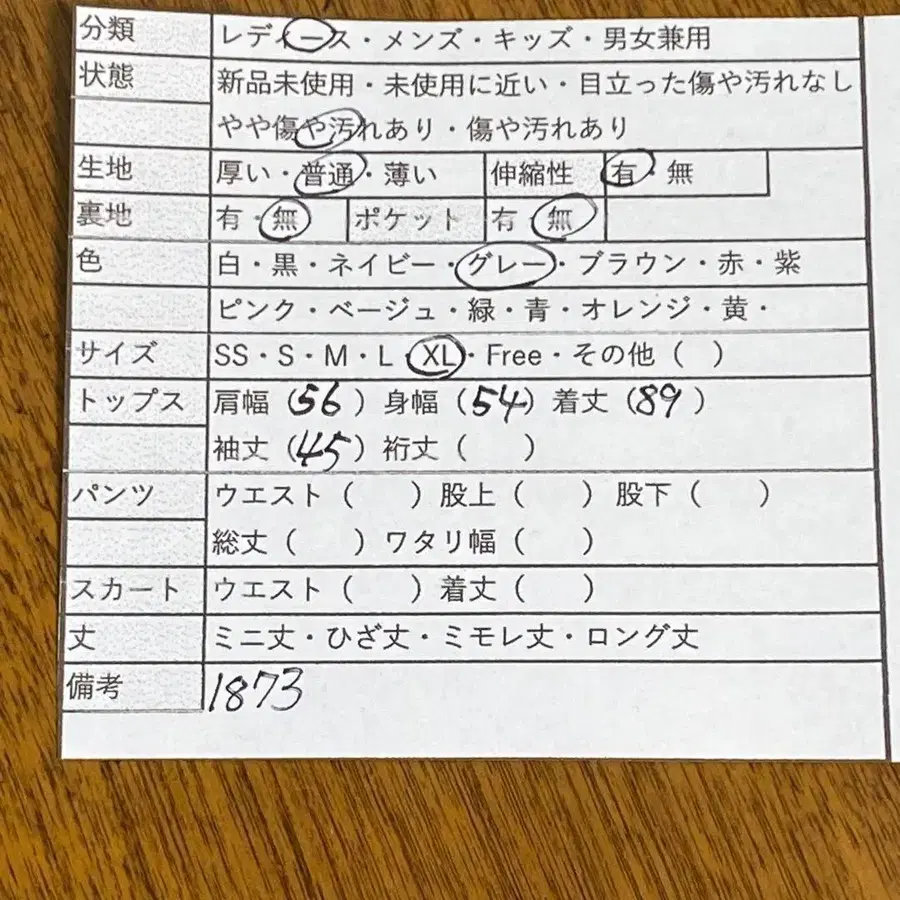 分類 レディース・メンズ・キッズ・男女兼用
状態 新品未使用・未使用に近い・目立った傷や汚れなし
やや傷や汚れあり・傷や汚れあり
生地 厚い・普通・薄い 伸縮性 有・無
裏地 有・無 ポケット 有・無
色 白・黒・ネイビー・グレー・ブラウン・赤・紫
ピンク・ベージュ・緑・青・オレンジ・黄・
サイズ SS・S・M・L・XL・Free・その他( )
トップス 肩幅(56)身幅(54)着丈(89)
袖丈(45)裄丈( )
パンツ ウエスト( )股上( )股下( )
総丈( )ワタリ幅( )
スカート ウエスト( )着丈( )
丈 ミニ丈・ひざ丈・ミモレ丈・ロング丈
備考 1873